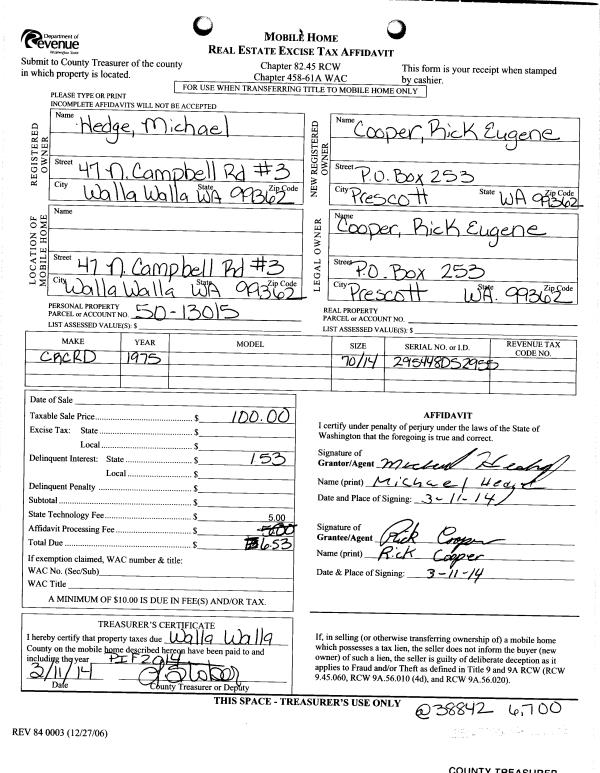 Department of
Revenue
Washington State
MOBILE HOME
REAL ESTATE EXCISE TAX AFFIDAVIT
Submit to County Treasurer of the county
in which property is located.
Chapter 82.45 RCW
Chapter 458-61A WAC
This form is your receipt when stamped
by cashier.
FOR USE WHEN TRANSFERRING TITLE TO MOBILE HOME ONLY
PLEASE TYPE OR PRINT
INCOMPLETE AFFIDAVITS WILL NOT BE ACCEPTED
REGISTERED OWNER
Name Hedge, Michael
Street 47 N. Campbell Rd #3
City Walla Walla State WA Zip Code 99362
NEW REGISTERED OWNER
Name Cooper, Rick Eugene
Street P.O. Box 253
City Prescott State WA Zip Code 99362
LOCATION OF MOBILE HOME
Name
Street 47 N. Campbell Rd #3
City Walla Walla State WA Zip Code 99362
LEGAL OWNER
Name Cooper, Rick Eugene
Street P.O. Box 253
City Prescott State WA. Zip Code 99362
PERSONAL PROPERTY
PARCEL or ACCOUNT NO. 50-13015
LIST ASSESSED VALUE(S): $
REAL PROPERTY
PARCEL or ACCOUNT NO.
LIST ASSESSED VALUE(S): $
MAKE YEAR MODEL SIZE SERIAL NO. or I.D. REVENUE TAX CODE NO.
1975 70/14 295448DS2955
Date of Sale
Taxable Sale Price $ 100.00
Excise Tax: State $
Local $
Delinquent Interest: State $ 153
Local $
Delinquent Penalty $
Subtotal $
State Technology Fee $ 5.00
Affidavit Processing Fee $ 5.00
Total Due $ 653
If exemption claimed, WAC number & title:
WAC No. (Sec/Sub)
WAC Title
A MINIMUM OF $10.00 IS DUE IN FEE(S) AND/OR TAX.
AFFIDAVIT
I certify under penalty of perjury under the laws of the State of
Washington that the foregoing is true and correct.
Signature of
Grantor/Agent Michael Hedge
Name (print) Michael Hedge
Date and Place of Signing: 3-11-14
Signature of
Grantee/Agent Rick Cooper
Name (print) Rick Cooper
Date & Place of Signing: 3-11-14
TREASURER'S CERTIFICATE
I hereby certify that property taxes due Walla Walla
County on the mobile home described hereon have been paid to and
including the year PIF 2014
3/11/14
Date County Treasurer or Deputy
If, in selling (or otherwise transferring ownership of) a mobile home
which possesses a tax lien, the seller does not inform the buyer (new
owner) of such a lien, the seller is guilty of deliberate deception as it
applies to Fraud and/or Theft as defined in Title 9 and 9A RCW (RCW
9.45.060, RCW 9A.56.010 (4d), and RCW 9A.56.020).
THIS SPACE - TREASURER'S USE ONLY
@38842 6,700
REV 84 0003 (12/27/06)
COUNTY TREASURER